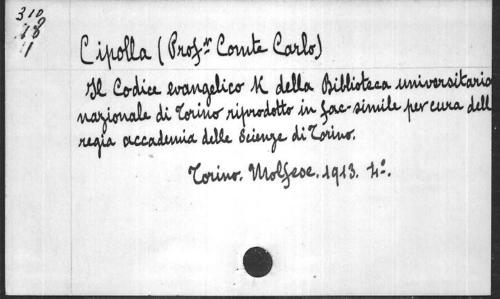 310
18
1
Cipolla (Prof.r Comte Carlo)
Il Codice evangelico K della Biblioteca universitaria
nazionale di Torino riprodotto in fac-simile per cura dell
regia accademia delle Scienze di Torino.
Torino. Molfese. 1913. 4º.